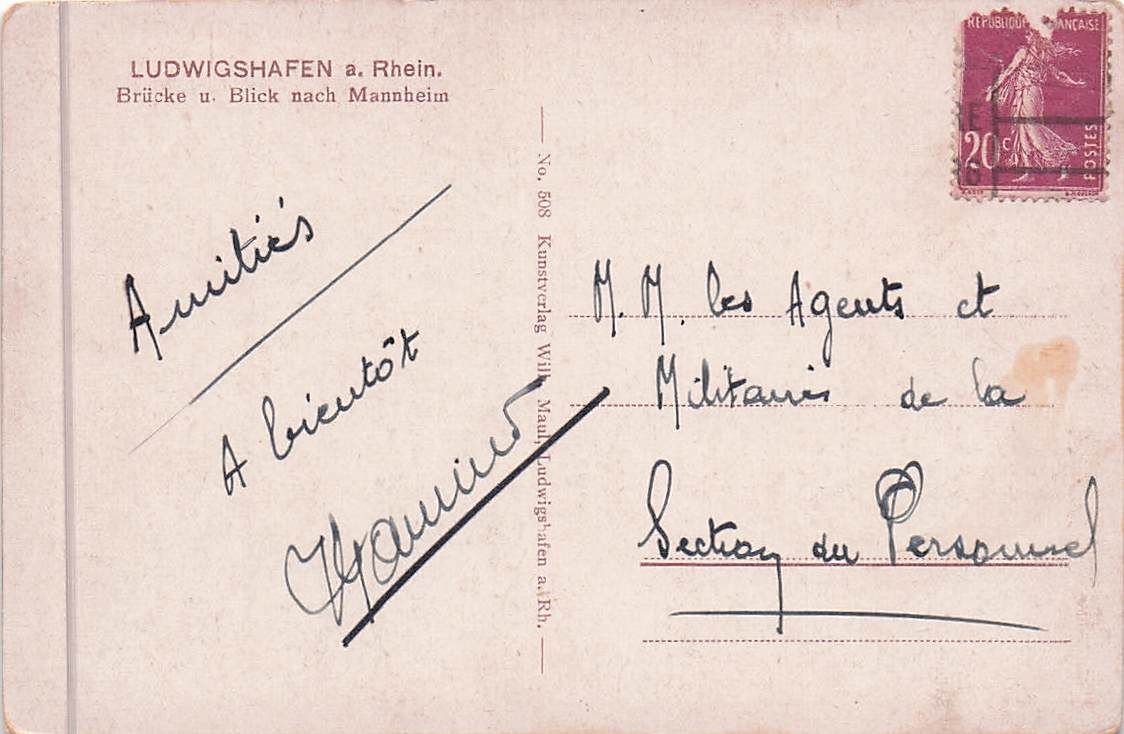 LUDWIGSHAFEN a. Rhein.
Brücke u. Blick nach Mannheim
Amitiés
A bientôt
No. 508 Kunstverlag Wilh. Maul, Ludwigshafen a. Rh.
REPUBLIQUE FRANÇAISE
20c
POSTES
RE
RG
M. M. les Agents et
Militaires de la
Section du Personnel